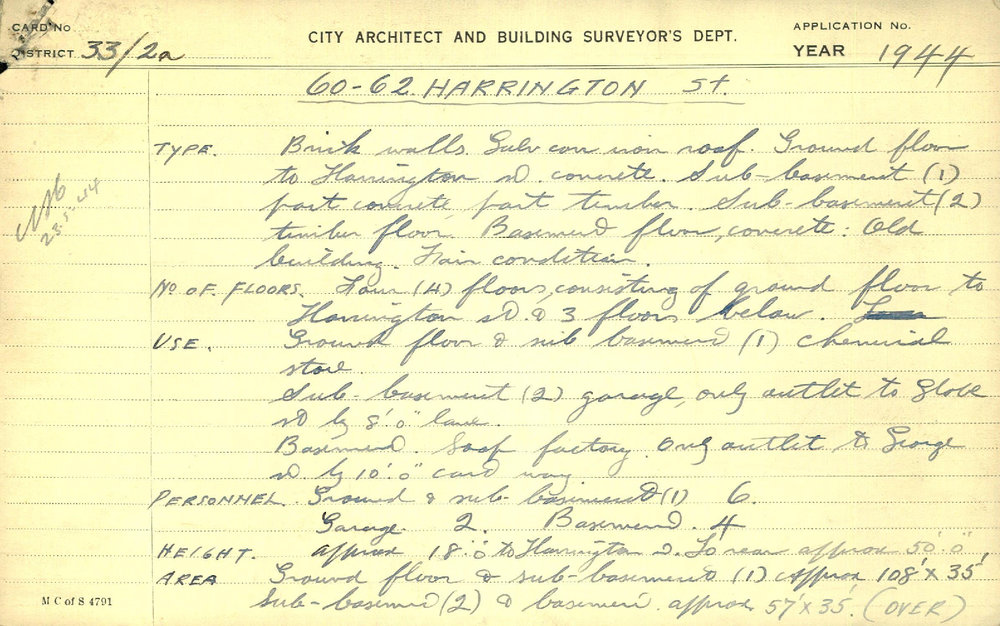 CARD No
DISTRICT 33/2a
CITY ARCHITECT AND BUILDING SURVEYOR'S DEPT.
APPLICATION No.
YEAR 1944
60-62 HARRINGTON St.
TYPE. Brick walls. Galv corr iron roof. Ground floor
to Harrington st. concrete. Sub-basement (1)
part concrete, part timber. Sub-basement (2)
timber floor Basement floor, concrete: Old
building. Fair condition.
23.5.44
No OF FLOORS. Four (4) floors, consisting of ground floor to
Harrington st. & 3 floors below.
USE. Ground floor & sub basement (1) chemical
store.
Sub-basement (2) garage, only outlet to Globe
st by 8'.0" lane.
Basement. Soap factory. Only outlet to George
st by 10'.0" card way
PERSONNEL. Ground & sub-basement (1) 6.
Garage. 2. Basement. 4
HEIGHT. approx 18'.0" to Harrington st. To rear approx 50'.0"
AREA Ground floor & sub-basement (1) approx 108' x 35'
Sub-basement (2) & basement approx 57' x 35'. (OVER)
M C of S 4791